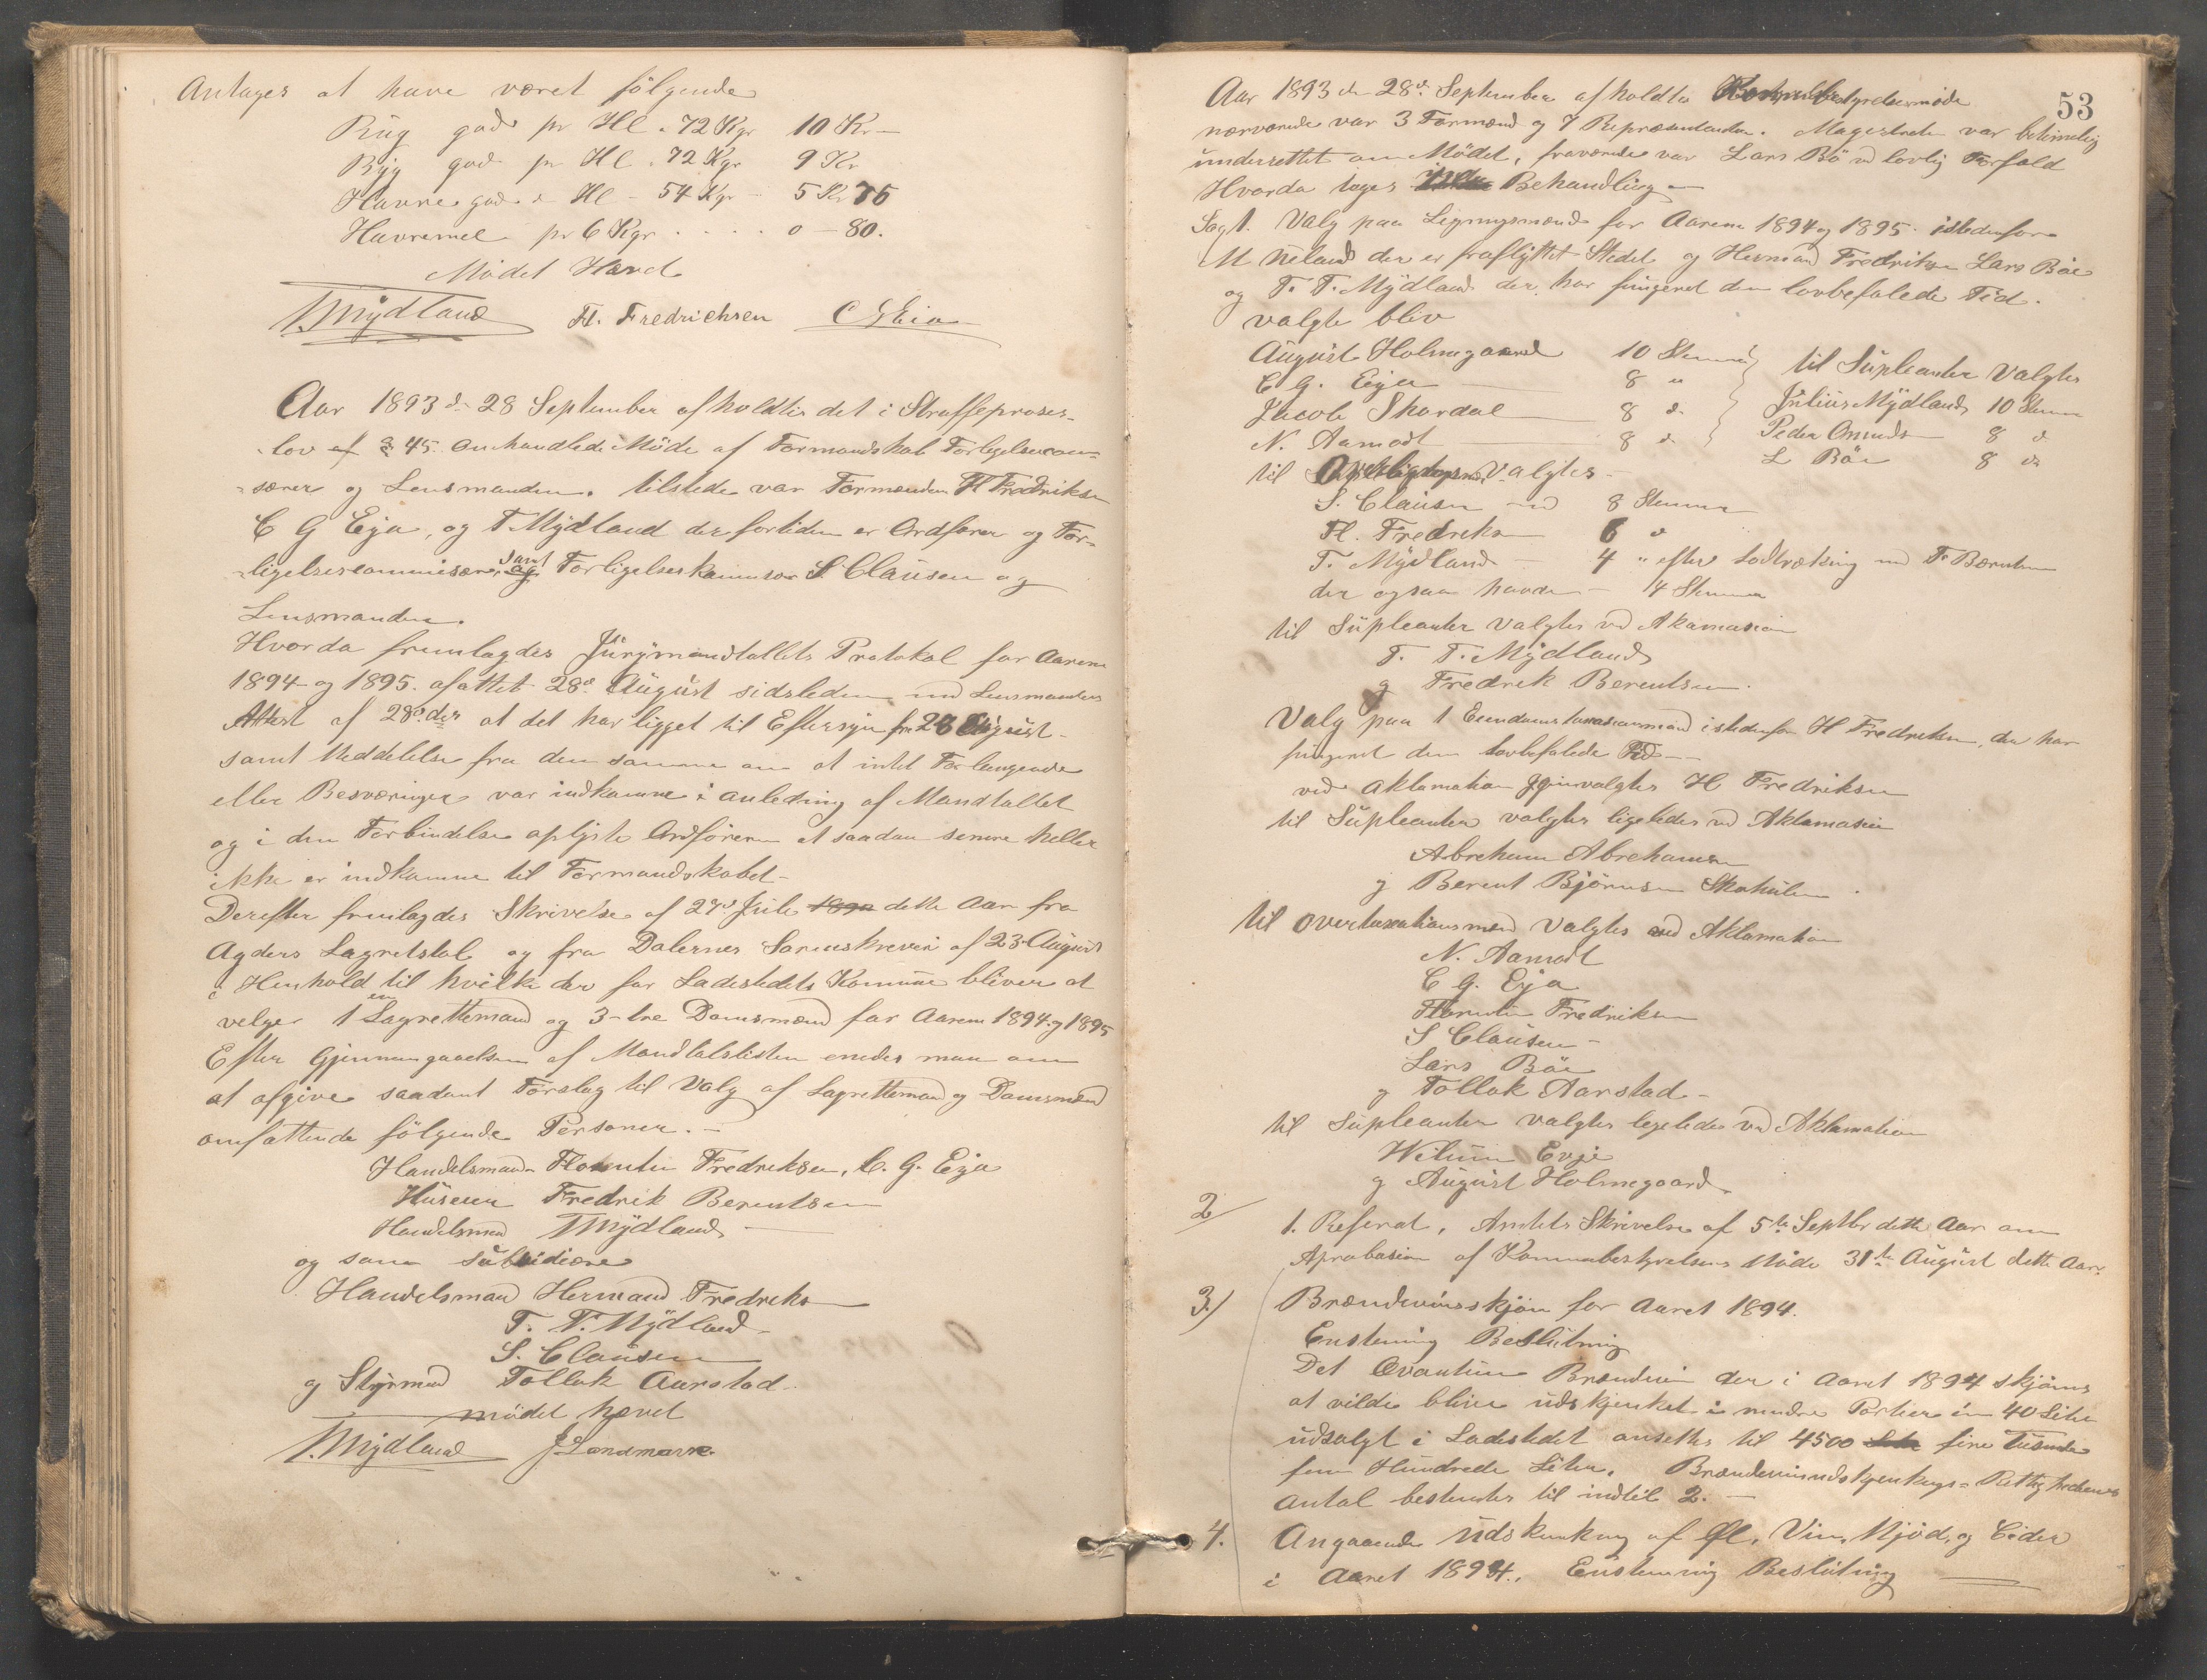 Antages at have været følgende
Rug god pr Hl. 72 Kgr 10 Kr –
Byg god pr Hl. 72 Kgr 9 Kr
Havre god " Hl – 54 Kgr – 5 Kr 75
Havremel pr 6 Kgr . . . . 0 – 80.
Mødet Hævet
T. Mydland Fl. Fredrichsen C G Eia
Aar 1893 d. 28 September afholdtes det i Straffeproses-
-lov af § 45. omhandlede Møde af Formandskab Forligelsecom-
-særer og Lensmanden. tilstede var Formænden Fl Fredriksen
C G Eja, og T Mydland der fortiden er Ordfører og For-
-ligelsescommisær, samt og Forligelseskommsær S. Clausen og
Lensmanden.
Hvorda fremlagdes Jurymandtallets Protokol for Aarene
1894 og 1895. afattet 28de August sidstleden med Lensmandens
Attest af 28de ds at det har ligget til Eftersyn fra 28 August –
samt Meddelelse fra den samme om at intet Forlangende
eller Besværinger var indkomne i anledning af Mandtallet
og i den Forbindelse oplyste Ordføreren at saadan senere heller
ikke er indkomne til Formandskabet –
Derefter fremlagdes Skrivelse af 27de Juli 1890 dette Aar fra
Agders Lagretstol og fra Dalernes Sorenskriveri af 23 August
i Henhold til hvilke der for Ladestedets Komune bliver at
velger 1 en Lagrettemand og 3 – tre Domsmænd for Aarene 1894 og 1895
Efter Gjennemgaaelsen af Mandtalslisten enedes man om
at afgive saadant Forslag til Valg af Lagrettemand og Domsmænd
omfattende følgende Personer. –
Handelsmænd Florentin Fredriksen, C. G. Eja
Huseier Fredrik Berentsen
Handelsmand T Mydland –
og som subsidiære
Handelsmand Hermand Fredriksen
T. T. Mydland
S. Clausen
og Styrmand Tollak Aarstad.
mødet hævet
T. Mydland J Landmark.
53
Aar 1893 den 28de September afholdtes Komunebestyrelsesmøde
nærværende var 3 Formænd og 7 Repræsentanter. Magestraten var betimelig
underrettet om Mødet, fraværende var Lars Bø ved lovlig Forfald
Hvorda toges Behandling –
Sag 1. Valg paa Ligningsmænd for Aarene 1894 og 1895. istedenfor
M Neland der er fraflyttet Stedet og Hermand Fredriksen Lars Bøe
og T. T. Mydland der har fungeret den lovbefalede Tid.
valgte blev
August Holmegaard 10 Stemmer til Supleanter Valgtes
C G. Eija – 8 " Julius Mydland 10 Stemmer
Jacob Skardal – 8 d. Peder Omunds 8 d
N. Aamodt – 8 d L Bøe 8 d
til Overligningsmænd Valgtes –
S. Clausen med 8 Stemmer
Fl. Fredriksen 6 d
T. Mydland – 4 " efter Lodtrækning med F. Berentsen
der ogsaa havde – 4 Stemmer
til Supleanter Valgtes ved Akamasion
T. T. Mydland
og Fredrik Berentsen.
Valg paa 1 Eiendomstaxasionsmand istedenfor H Fredriksen, der har
fungeret den lovbefalede Tid –
ved Aklamation gjenvalgtes H Fredriksen
til Supleanter valgtes ligeledes ved Aklamasion
Abreham Abrehamsen
og Berent Bjørnsen
til overtaxationsmænd Valgtes ved Aklamation
N. Aamodt
C G. Eja
Florentin Fredriksen
S Clausen –
Lars Bøe
og Tollak Aarstad –
til Supleanter valgtes legeledes ved Aklamation
Evje
og August Holmegaard
2/ 1. Referat, Amtets Skrivelse af 5te Septbr dette Aar om
Aprobasion af Kommubestyrelsens Møde 31te August dette Aar.
3/ Brændevinsskjøn for Aaret 1894.
Enstemig Beslutning
Det Qvantum Brændevin der i Aaret 1894 skjøns
at vilde blive udskjenket i mindre Partier in 40 Liter
udsolgt i Ladestedet ansettes til 4500 Liter fire Tusinde
fem Hundrede Liter. Brændevinsudskjenknings-Rettighedernes
Antal bestemtes til indtil 2. –
4. Angaaende Udskenkning af Øl, Vin, Mjød, og Cider
i Aaret 1894. Enstemmig Beslutning –